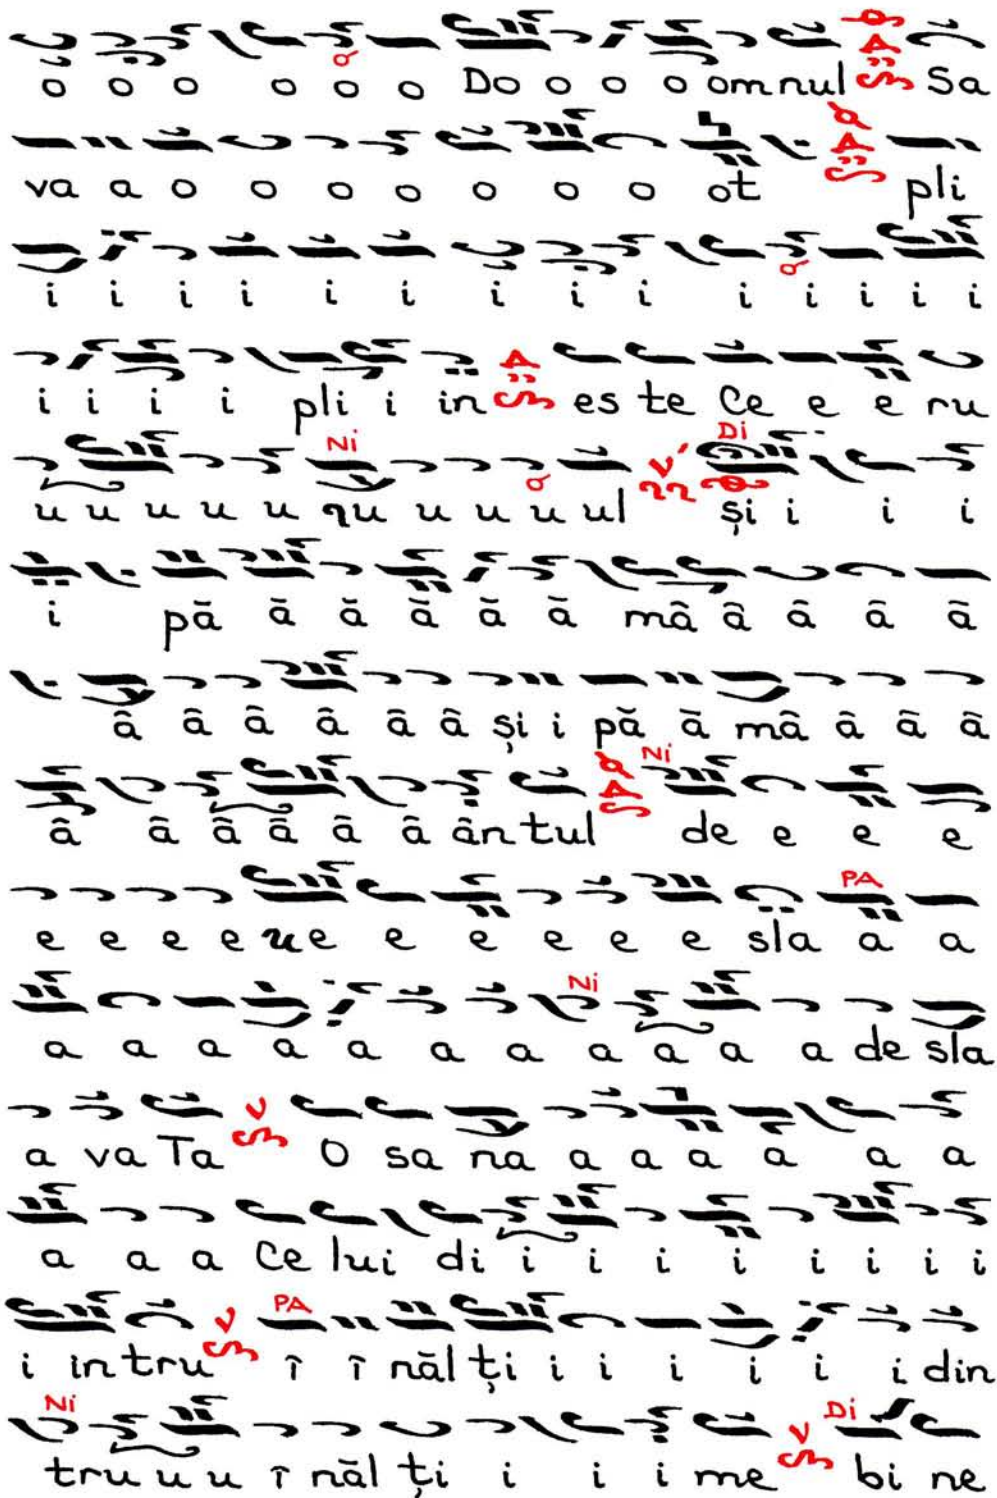 o o o o o o Do o o o omnul Sa
va a o o o o o o o o ot pli
i i i i i i i i i i i i i i
i i i i pli i in es te Ce e e ru
Ni Di
u u u u u qu u u u ul și i i i
i pă ă ă ă ă ă mâ â â â â
â â â â â â și i pă ă mâ â â â
Ni
â â â â â â ântul de e e e
PA
e e e e ue e e e e e sla a a
Ni
a a a a a a a a a a a de sla
a va Ta O sa na a a a a a a
a a a Ce lui di i i i i i i i i
PA
i intru î î năl ți i i i i i i din
Ni Di
tru u u î năl ți i i i me bi ne